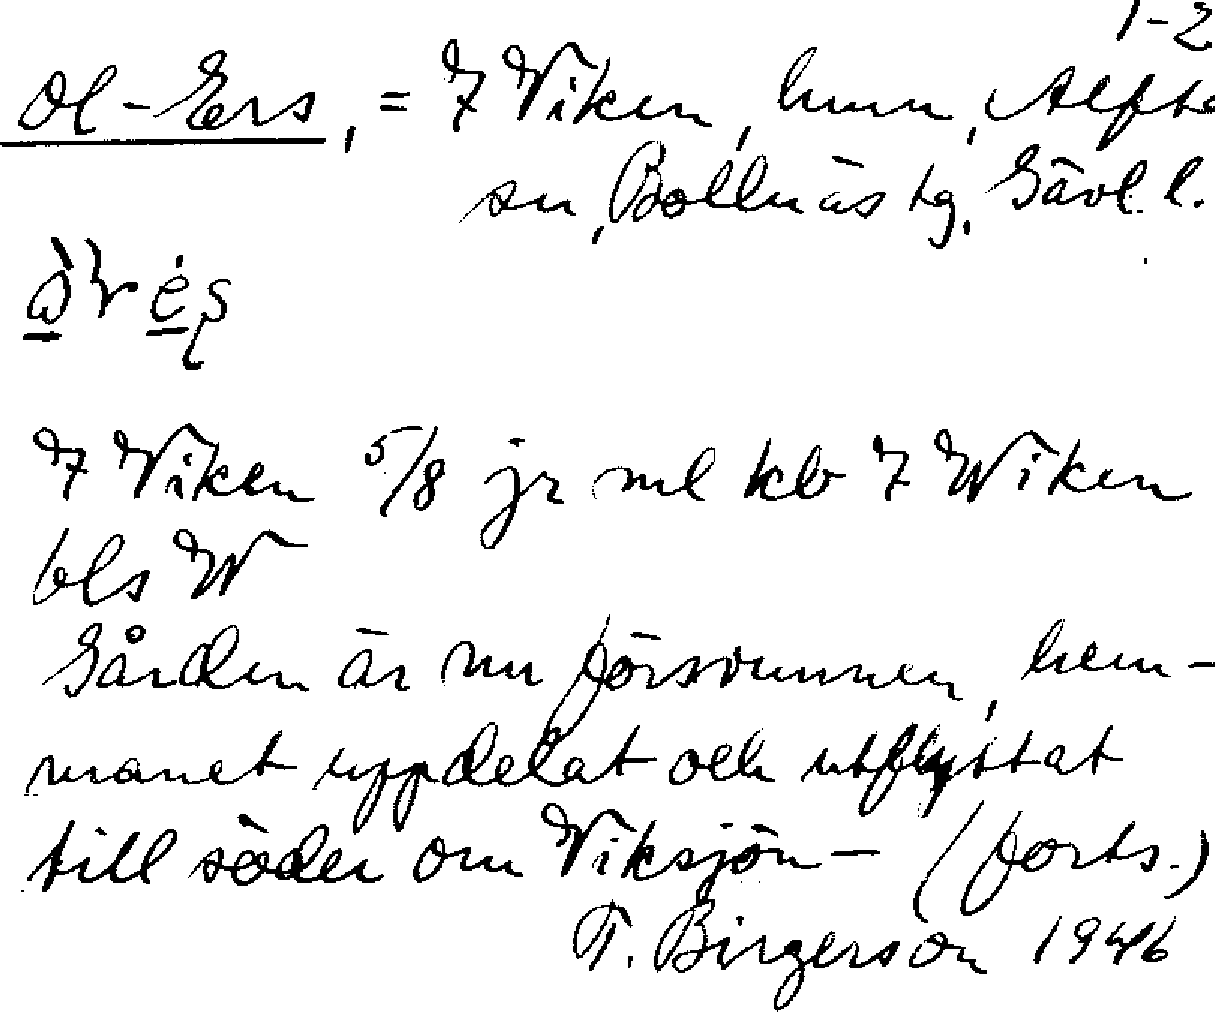 1-2
Ol-Ers, = 7 Viken, hmn, Alfta
sn, Bollnäs tg, Gävl. l.
7 Viken 5/8 jr ml kb 7 Wiken
bls W
Gården är nu försvunnen, hem-
manet uppdelat och utflyttat
till söder om Viksjön - (forts.)
T. Birgerson 1946